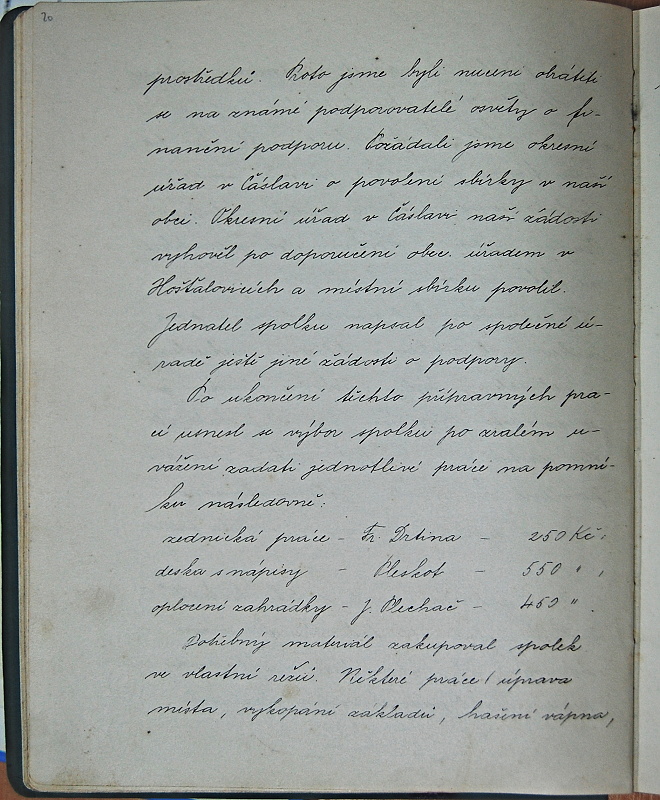 20
prostředků. Proto jsme byli nuceni obrátiti
se na známé podporovatelé osvěty o fi-
nanční podporu. Požádali jsme okresní
úřad v Čáslavi o povolení sbírky v naší
obci. Okresní úřad v Čáslavi naší žádosti
vyhověl po doporučení obec. úřadem v
Hošťalovicích a místní sbírku povolil.
Jednatel spolku napsal po společné ú-
radě ještě jiné žádosti o podpory.
Po ukončení těchto přípravných pra-
cí usnesl se výbor spolku po zralém u-
vážení zadati jednotlivé práce na pomní-
ku následovně:
zednická práce - Fr. Drtina - 250 Kč,
deska s nápisy - Pleskot - 550 " ,
oplocení zahrádky - J. Plechač - 450 " .
Potřebný materiál zakupoval spolek
ve vlastní režii. Některé práce / úprava
místa, vykopání základů, hašení vápna,